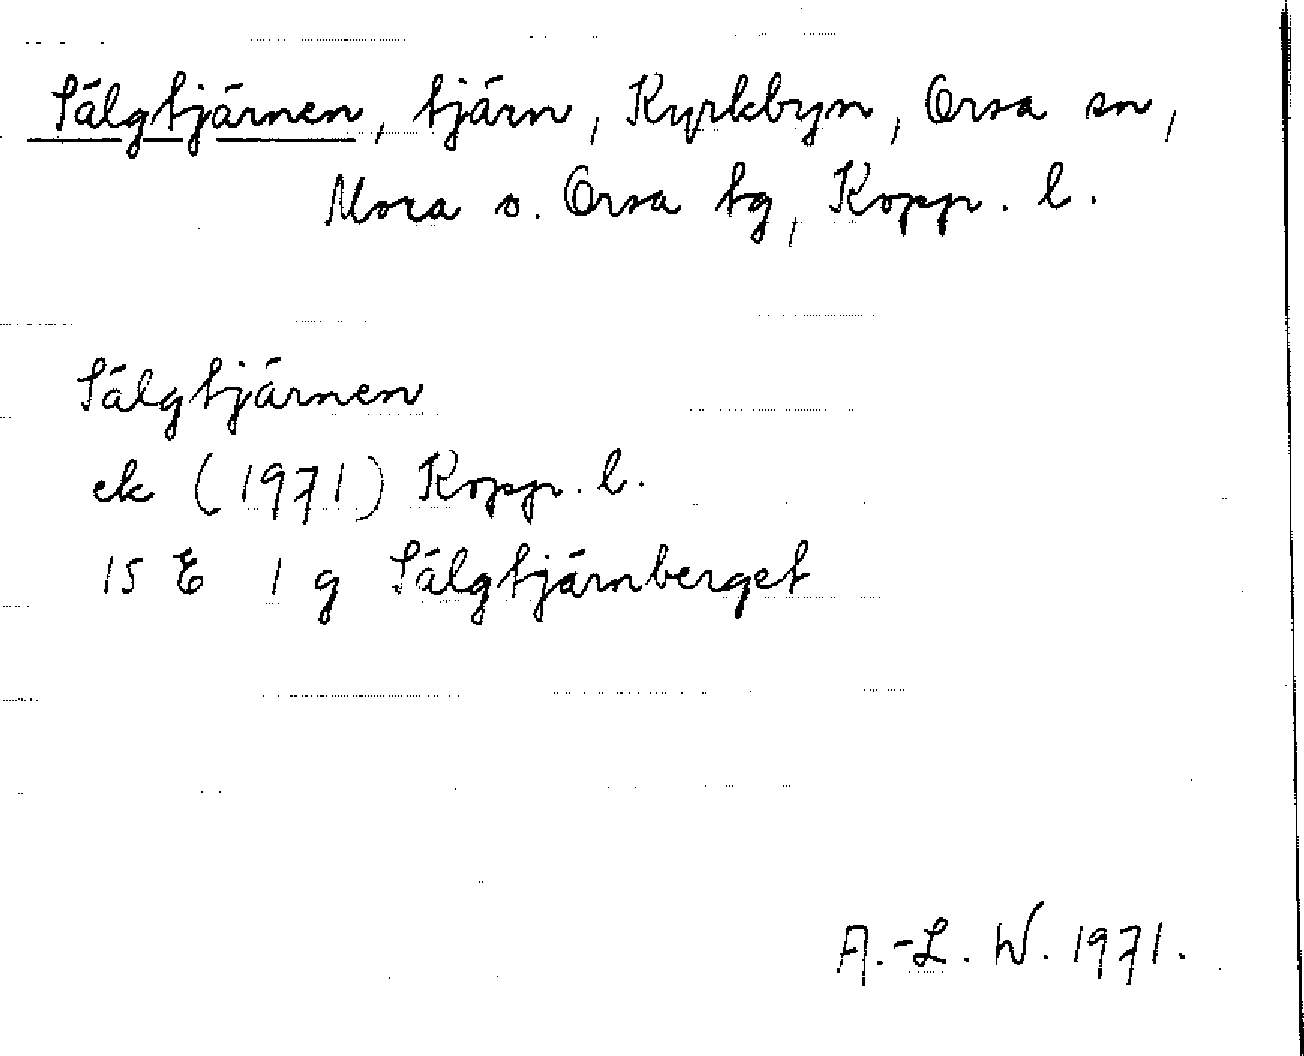 Sälgtjärnen, tjärn, Kyrkbyn, Orsa sn,
Mora o. Orsa tg, Kopp. l.
Sälgtjärnen
ek (1971) Kopp. l.
15 E 1 g Sälgtjärnberget
A.-L. W. 1971.